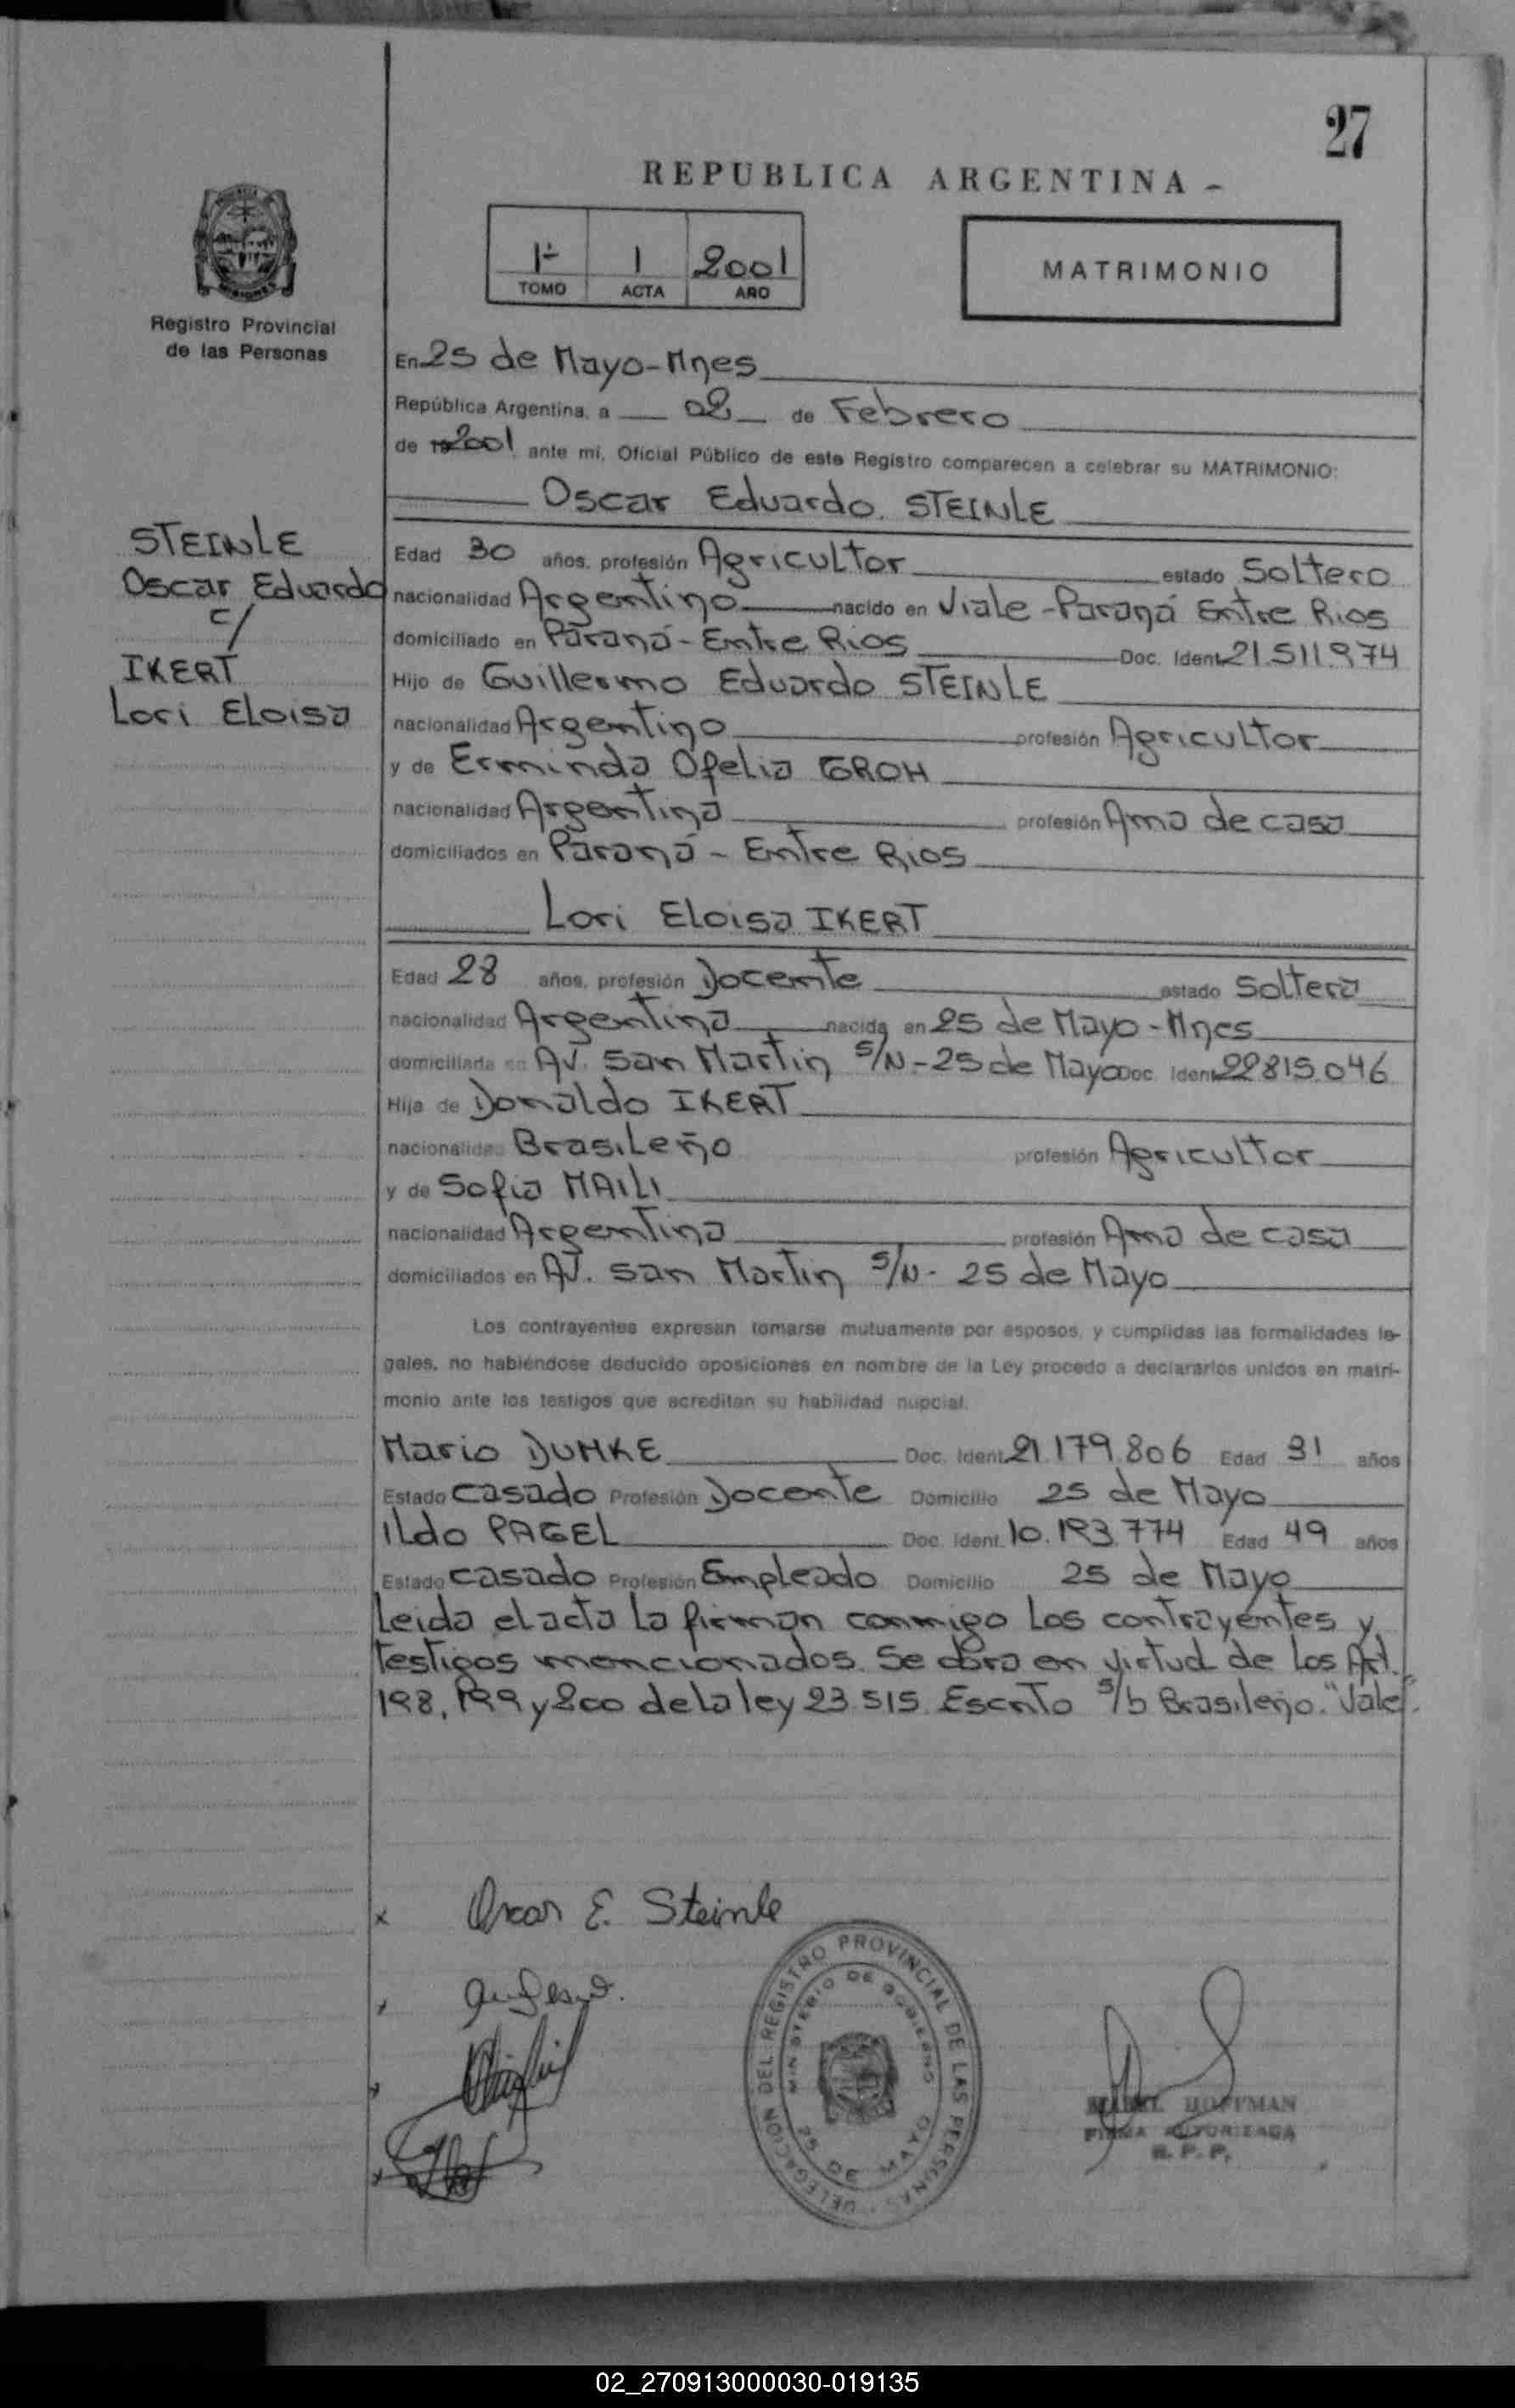 27
REPUBLICA ARGENTINA -
1º 1 2001
TOMO ACTA AÑO
MATRIMONIO
Registro Provincial
de las Personas
STEINLE
Oscar Eduardo
c/
IKERT
Lori Eloisa
En 25 de Mayo-Mnes
República Argentina, a 02 de Febrero
de 2001 ante mi, Oficial Público de este Registro comparecen a celebrar su MATRIMONIO:
Oscar Eduardo. STEINLE
Edad 30 años, profesión Agricultor estado Soltero
nacionalidad Argentino nacido en Viale-Paraná Entre Rios
domiciliado en Paraná-Entre Rios Doc. Ident. 21.511.974
Hijo de Guillermo Eduardo STEINLE
nacionalidad Argentino profesión Agricultor
y de Erminda Ofelia GROH
nacionalidad Argentina profesión Ama de casa
domiciliados en Paraná - Entre Rios
Lori Eloisa IKERT
Edad 28 años, profesión Docente estado Soltera
nacionalidad Argentina nacida en 25 de Mayo-Mnes
domiciliada en AV. San Martin S/N.-25 de Mayo Doc. Ident. 22815.046
Hija de Donaldo IKERT
nacionalidad Brasileño profesión Agricultor
y de Sofia MAILI
nacionalidad Argentina profesión Ama de casa
domiciliados en AV. San Martin S/N- 25 de Mayo
Los contrayentes expresan tomarse mutuamente por esposos, y cumplidas las formalidades le-
gales, no habiéndose deducido oposiciones en nombre de la Ley procedo a declararlos unidos en matri-
monio ante los testigos que acreditan su habilidad nupcial.
Mario DUMKE Doc. Ident. 21.179.806 Edad 31 años
Estado Casado Profesión Docente Domicilio 25 de Mayo
Ildo PAGEL Doc. Ident. 10.193.774 Edad 49 años
Estado Casado Profesión Empleado Domicilio 25 de Mayo
Leida el acta la firman conmigo los contrayentes y
testigos mencionados. Se obra en virtud de los Art.
198, 199 y 200 de la ley 23.515. Escrito s/b Brasileño. "Vale".
x Oscar E. Steinle
DELEGACION DEL REGISTRO PROVINCIAL DE LAS PERSONAS
MINISTERIO DE GOBIERNO
25 DE MAYO
HOFFMAN
FIRMA AUTORIZADA
R. P. P.
02_270913000030-019135